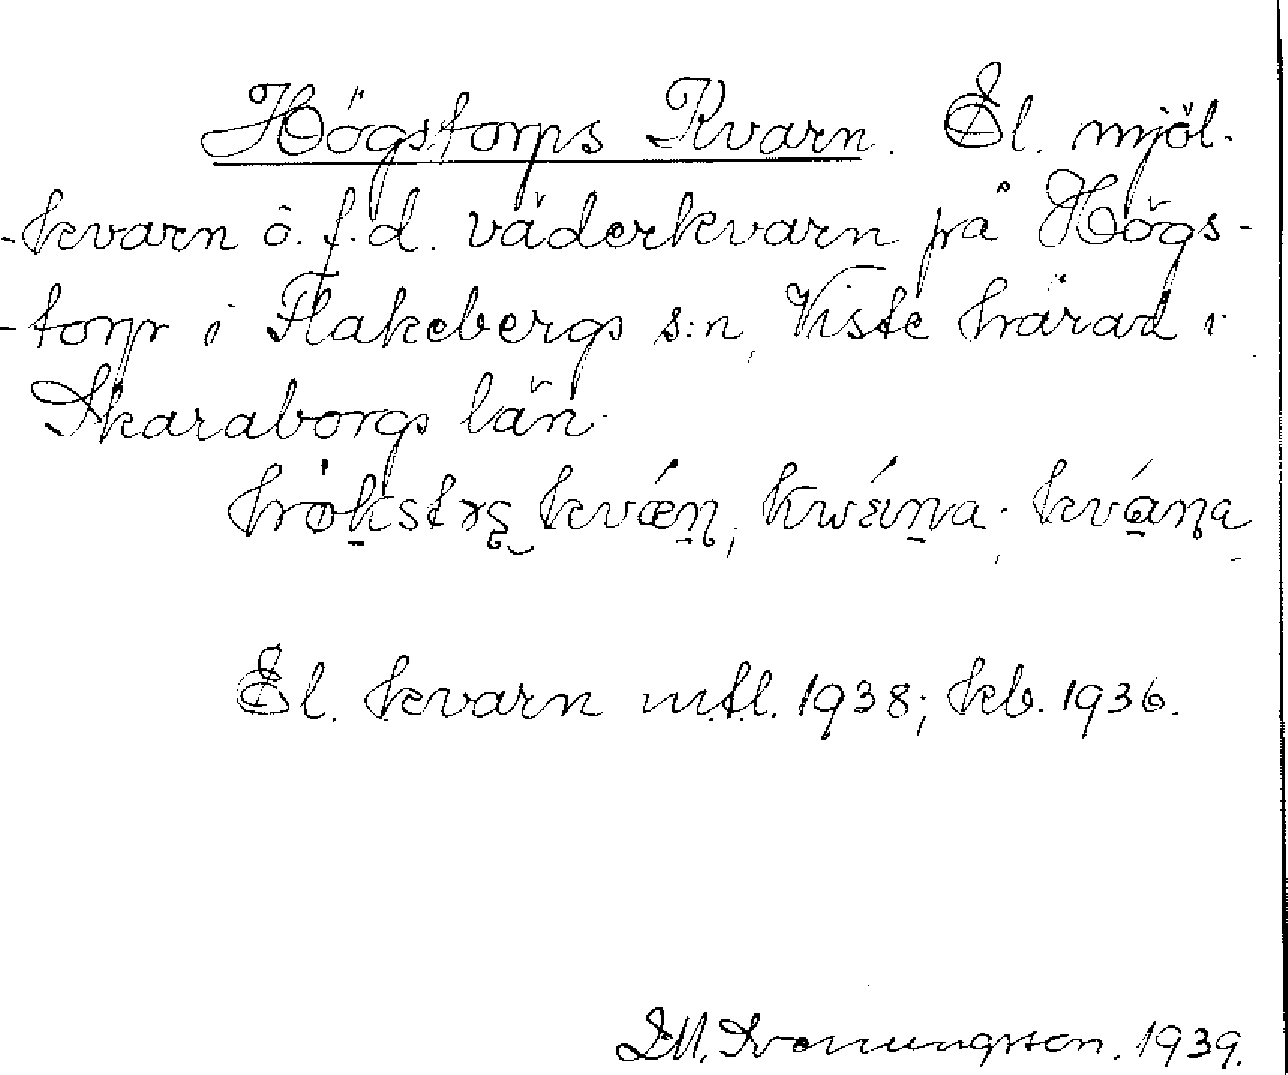 Högstorps Kvarn. El. mjöl-
-kvarn o. f.d. väderkvarn på Högs-
-torp i Flakebergs s:n, Viste härad i
Skaraborgs län.
El. kvarn mtl. 1938; kb. 1936.
Svenungsson. 1939.